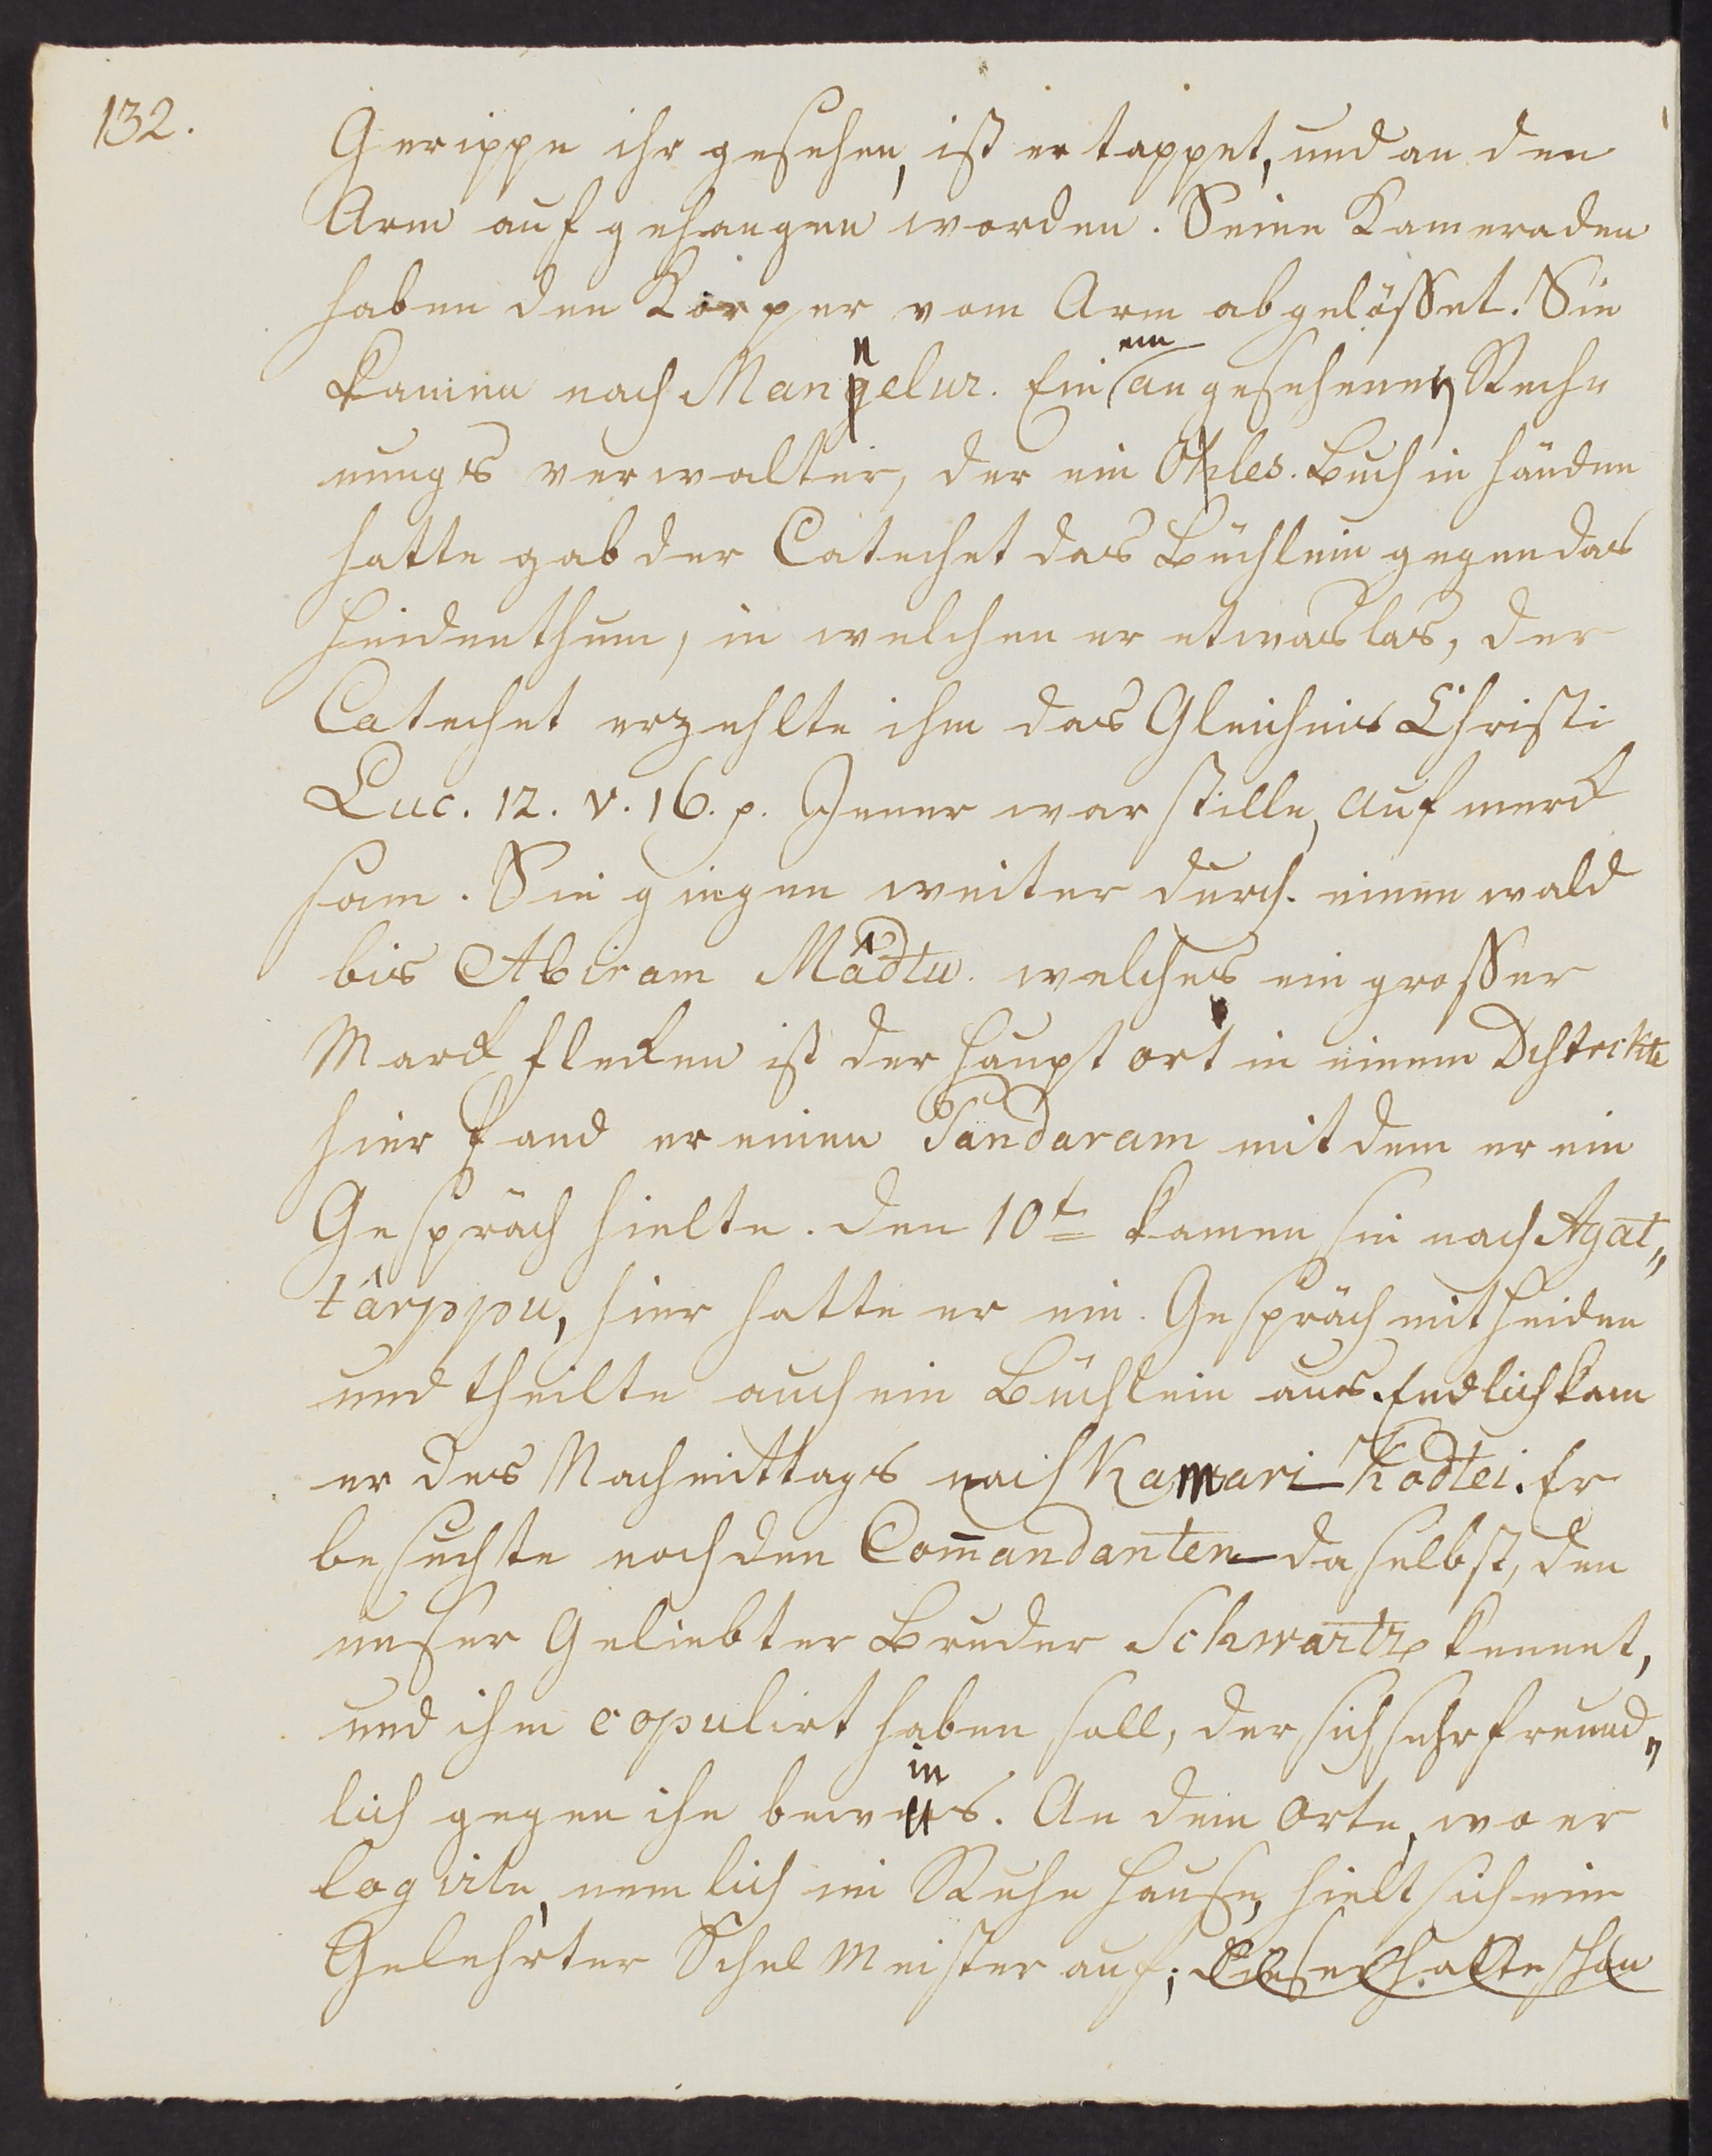 132.
Gerippe ihr gesehen, ist ertappet, und an den
Arm aufgehangen worden. Seine Kameraden
haben den Körper vom Arm abgelösset. Sie
kamen nach Mannelur. Einem angesehenen Rech„
nungs verwalter, der ein Ohles. Buch in händen
hatte gab der Catechet das Büchlein gegen das
Heidenthum, in welchen er etwas las, der
Catechet erzehlte ihm das Gleichnis Christi
Luc. 12. v. 16. p. Jener war stille, aufmerck
sam. Sie giengen weiter durch einen wald
bis Abiram Mâdtu. welches ein grosser
Marck flecken ist der Haupt ort in einem
hier fand er einen Pandaram mit dem er ein
Gespräch hielte. den 10t kamen sie nach Agat„
târppu, hier hatte er ein Gespräch mit Heiden
und theilte auch ein Büchlein aus. Endlich kam
er des Nachmittags nach Kamari Kodtei. Er
besuchte noch den Com̄andanten daselbst, den
unser Geliebter Bruder Schwartz kennet,
und ihm copulirt haben soll, der sich sehr freund„
lich gegen ihn bewies. An dem Orte, wo er
logirte, nemlich im Ruhe Hause, hielt sich ein
Gelehrter Schul Meister auf; dieser hatte schon